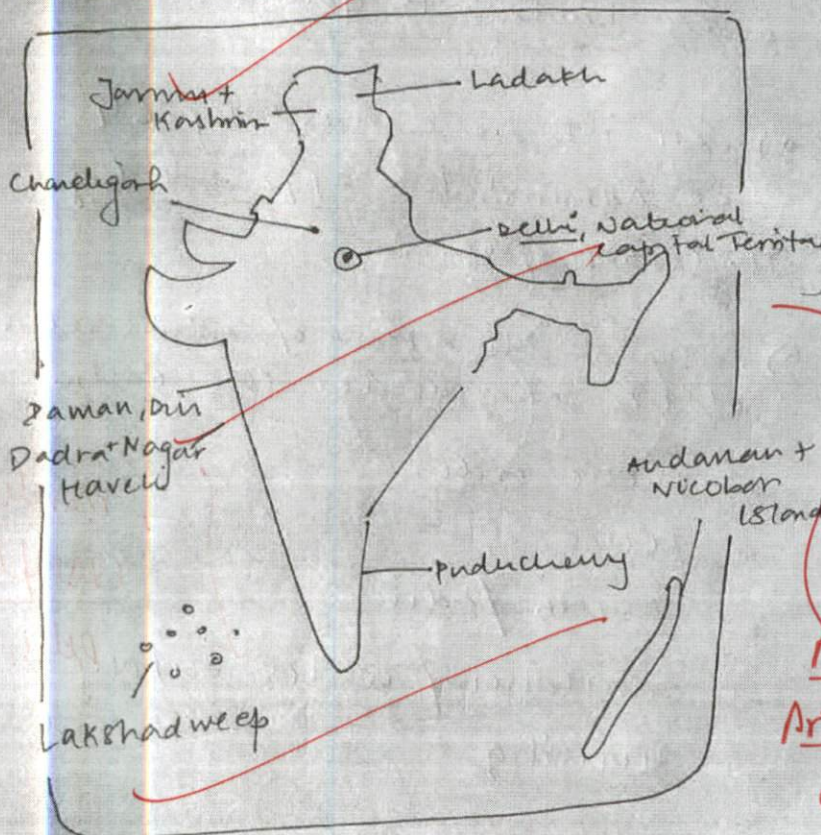 Jammu +
Kashmir
Ladakh
Chandigarh
Delhi, National
Capital Territo
Daman, Diu
Dadra + Nagar
Haveli
Andaman +
Nicobar
Island
Puducherry
Lakshadweep
Ar